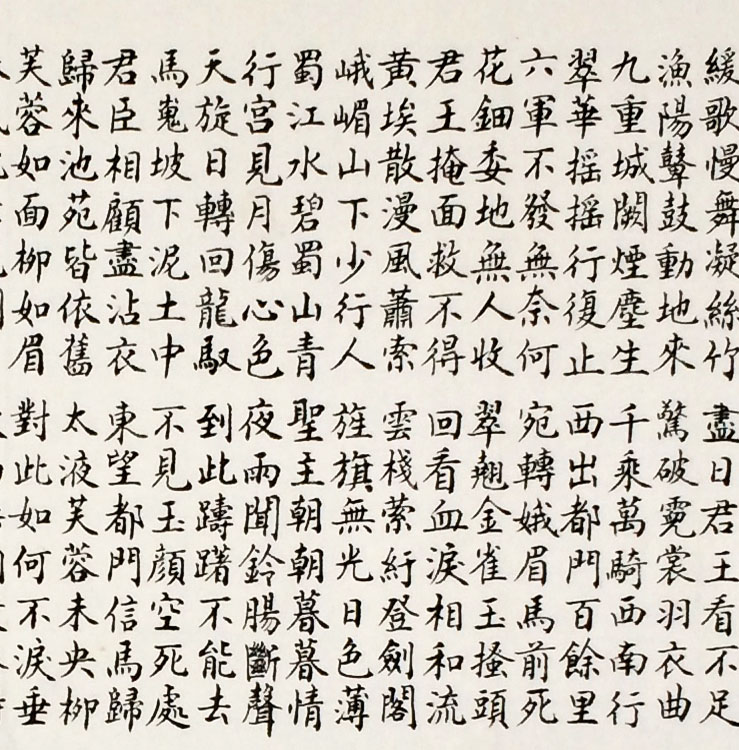 緩歌慢舞凝絲竹 盡日君王看不足
漁陽鼙鼓動地來 驚破霓裳羽衣曲
九重城闕煙塵生 千乘萬騎西南行
翠華搖搖行復止 西出都門百餘里
六軍不發無奈何 宛轉娥眉馬前死
花鈿委地無人收 翠翹金雀玉搔頭
君王掩面救不得 回看血淚相和流
黃埃散漫風蕭索 雲棧縈紆登劍閣
峨嵋山下少行人 旌旗無光日色薄
蜀江水碧蜀山青 聖主朝朝暮暮情
行宮見月傷心色 夜雨聞鈴腸斷聲
天旋日轉回龍馭 到此躊躇不能去
馬嵬坡下泥土中 不見玉顏空死處
君臣相顧盡沾衣 東望都門信馬歸
歸來池苑皆依舊 太液芙蓉未央柳
芙蓉如面柳如眉 對此如何不淚垂